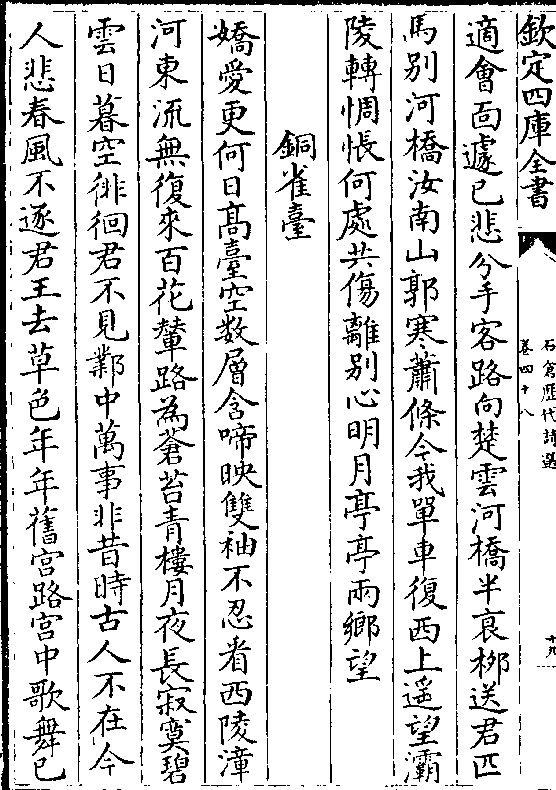 欽定四庫全書
石倉歷代詩選
卷四十八
十九
適會面遽已悲分手客路向楚雲河橋半哀桺送君匹
馬別河橋汝南山郭寒蕭條今我單車復西上遥望灞
陵轉惆悵何處共傷離別心明月亭亭兩鄉望
銅雀臺
嬌愛更何日髙臺空数層含啼映雙袖不忍看西陵漳
河東流無復來百花輦路為蒼苔青樓月夜長寂寞碧
雲日暮空徘徊君不見鄴中萬事非昔時古人不在今
人悲春風不逐君王去草色年年舊宫路宫中歌舞已